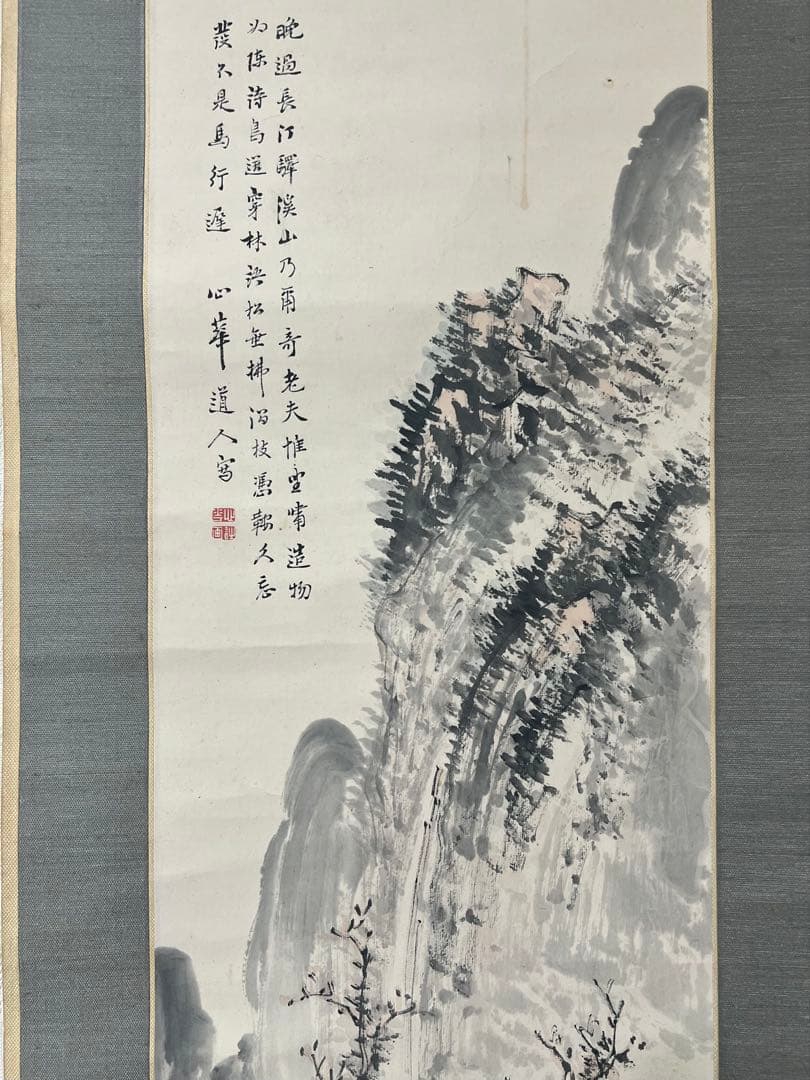 晚過長汀驛溪山乃爾奇老夫惟坐嘯造物
為陳詩鳥穿林語松垂拂澗枝憑鞍久忘
發不是馬行遲 心華道人寫